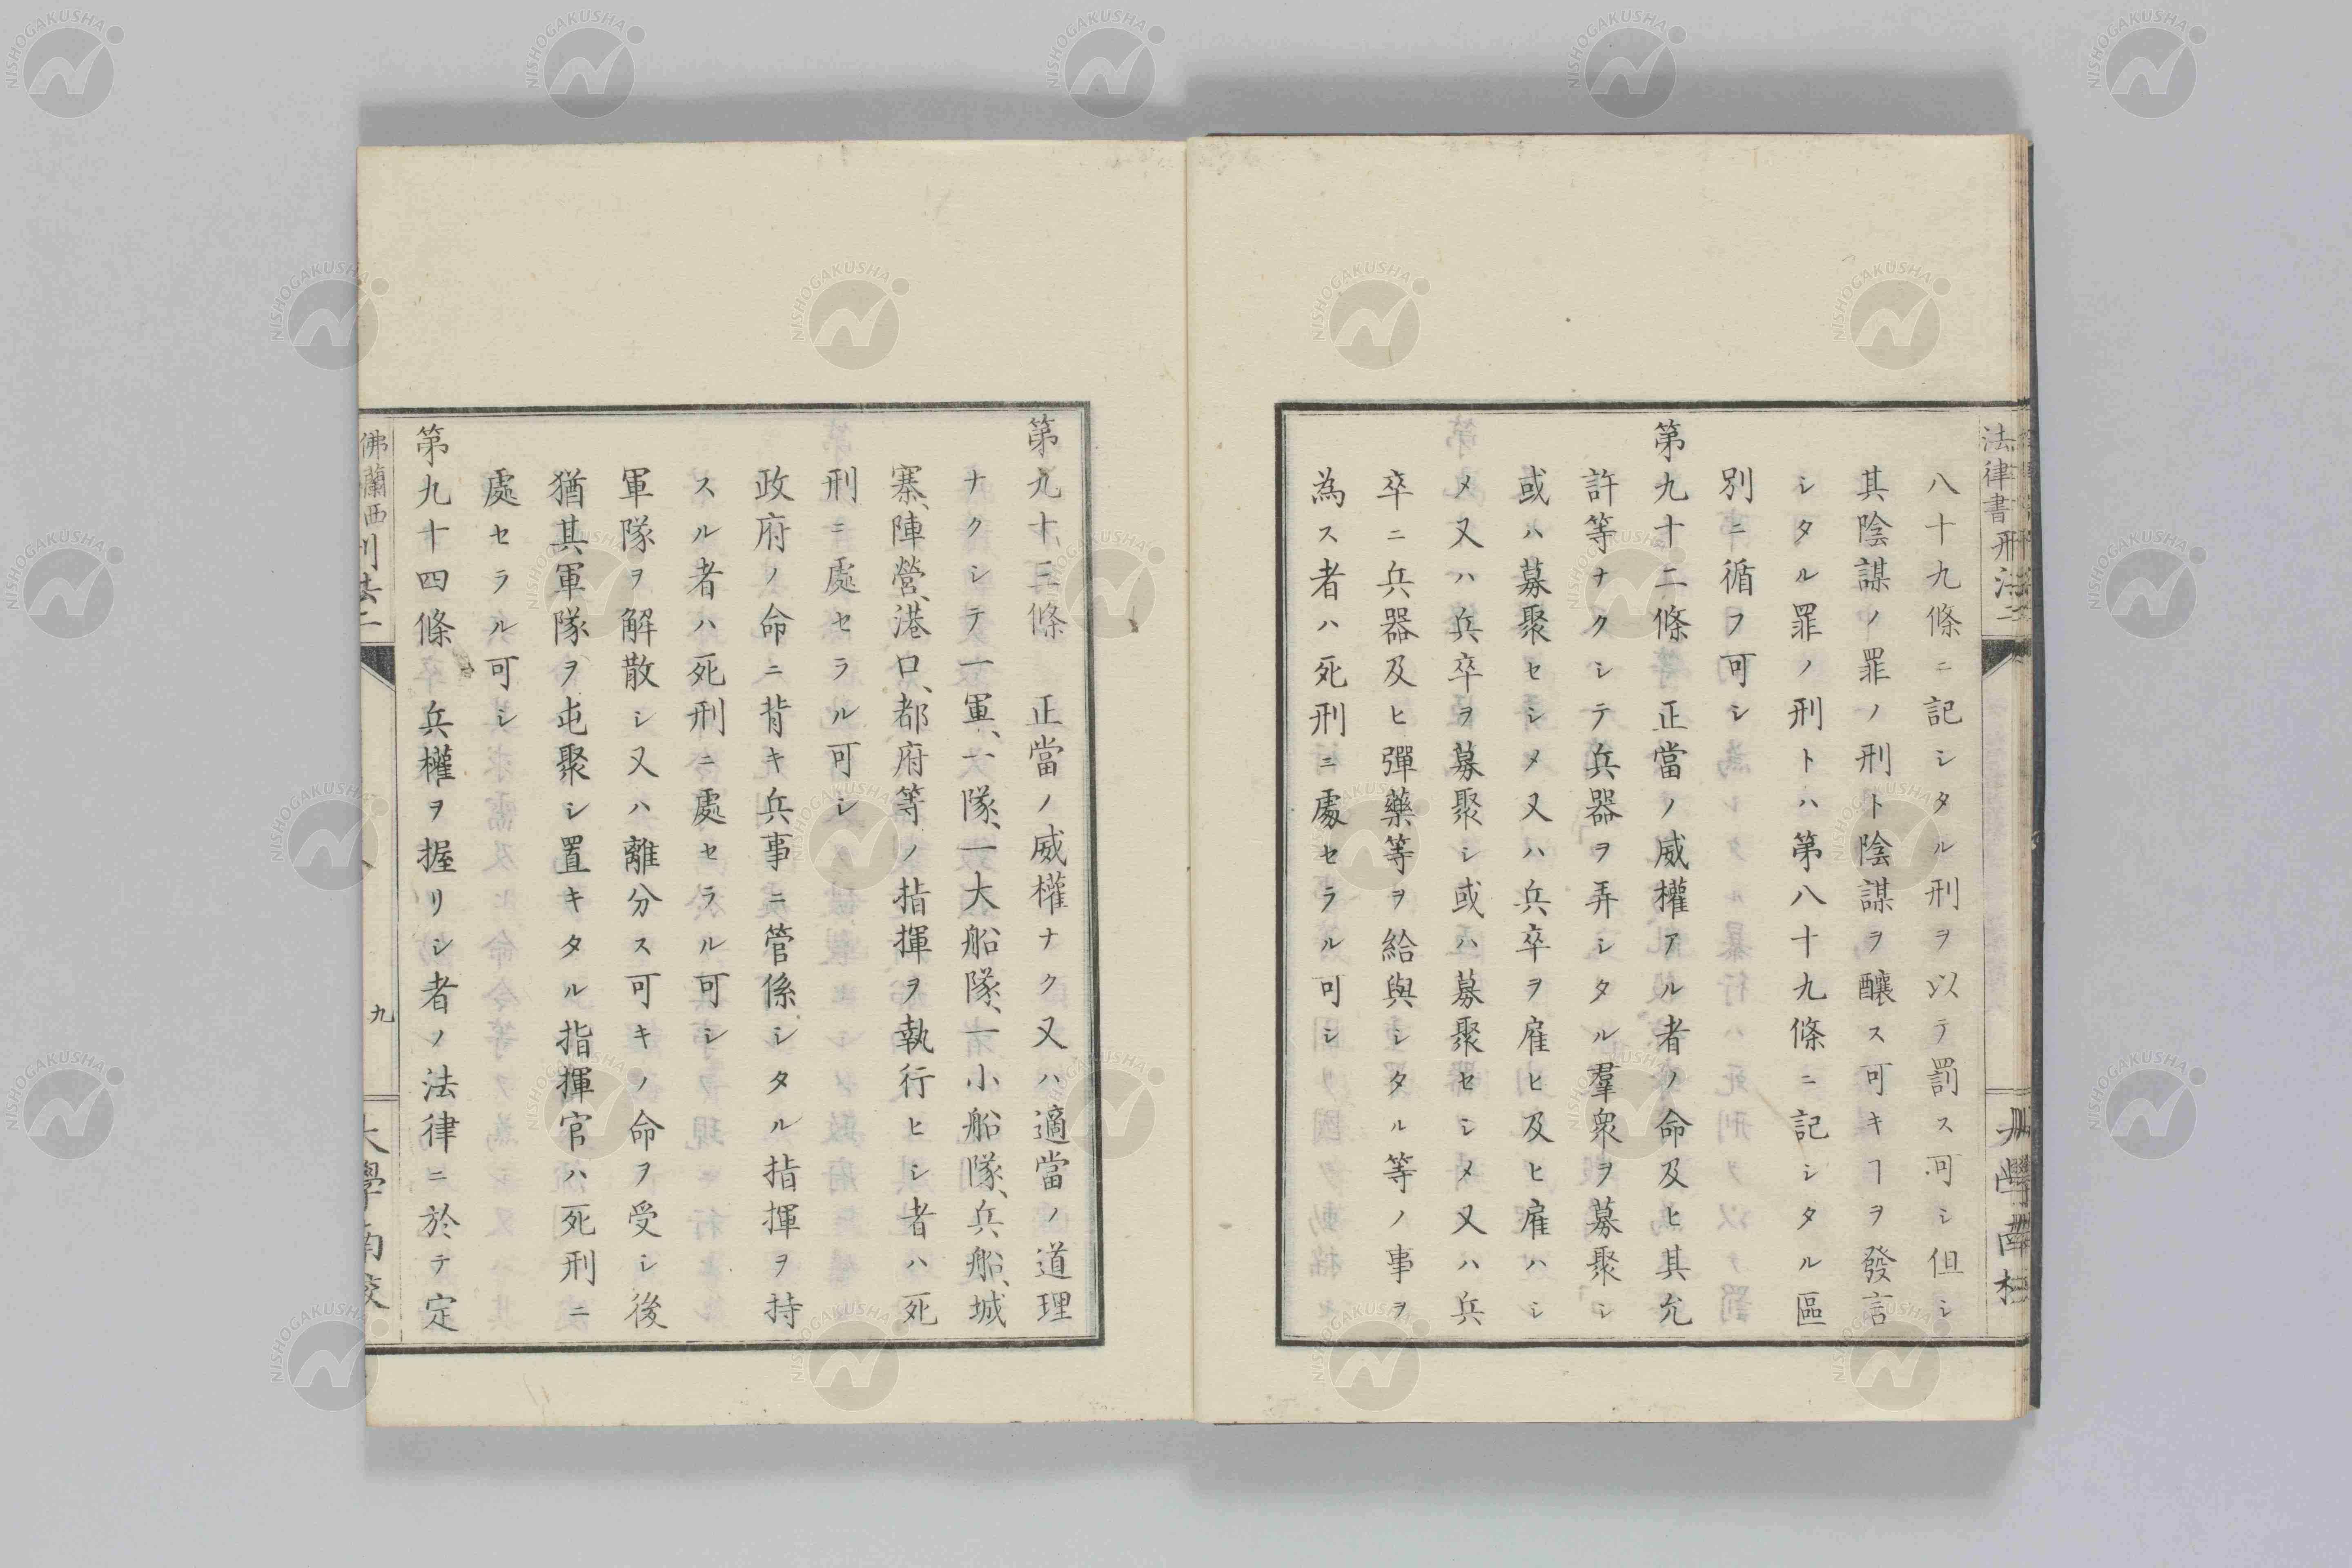 八十九條ニ記シタル刑ヲ以テ罰ス可シ但シ
其陰謀ノ罪ノ刑ト陰謀ヲ釀ス可キヿヲ發言
シタル罪ノ刑トハ第八十九條ニ記シタル區
別ニ循フ可シ
第九十二條　正當ノ威權アル者ノ命及ヒ其允
許等ナクシテ兵器ヲ弄シタル羣衆ヲ募聚シ
或ハ募聚セシメ又ハ兵卒ヲ雇ヒ及ヒ雇ハシ
メ又ハ兵卒ヲ募聚シ或ハ募聚セシメ又ハ兵
卒ニ兵器及ヒ彈藥等ヲ給與シタル等ノ事ヲ
為ス者ハ死刑ニ處セラル可シ
第九十三條　正當ノ威權ナク又ハ適當ノ道理
ナクシテ一軍、一隊、一大船隊、一小船隊、兵船、城
寨、陣營、港口、都府等ノ指揮ヲ執行ヒシ者ハ死
刑ニ處セラル可シ
政府ノ命ニ背キ兵事ニ管係シタル指揮ヲ持
スル者ハ死刑ニ處セラル可シ
軍隊ヲ解散シ又ハ離分ス可キノ命ヲ受シ後
猶其軍隊ヲ屯聚シ置キタル指揮官ハ死刑ニ
處セラル可シ
第九十四條　兵權ヲ握リシ者ノ法律ニ於テ定
佛蘭西刑法二
九
大學南校
NISHOGAKUSHA